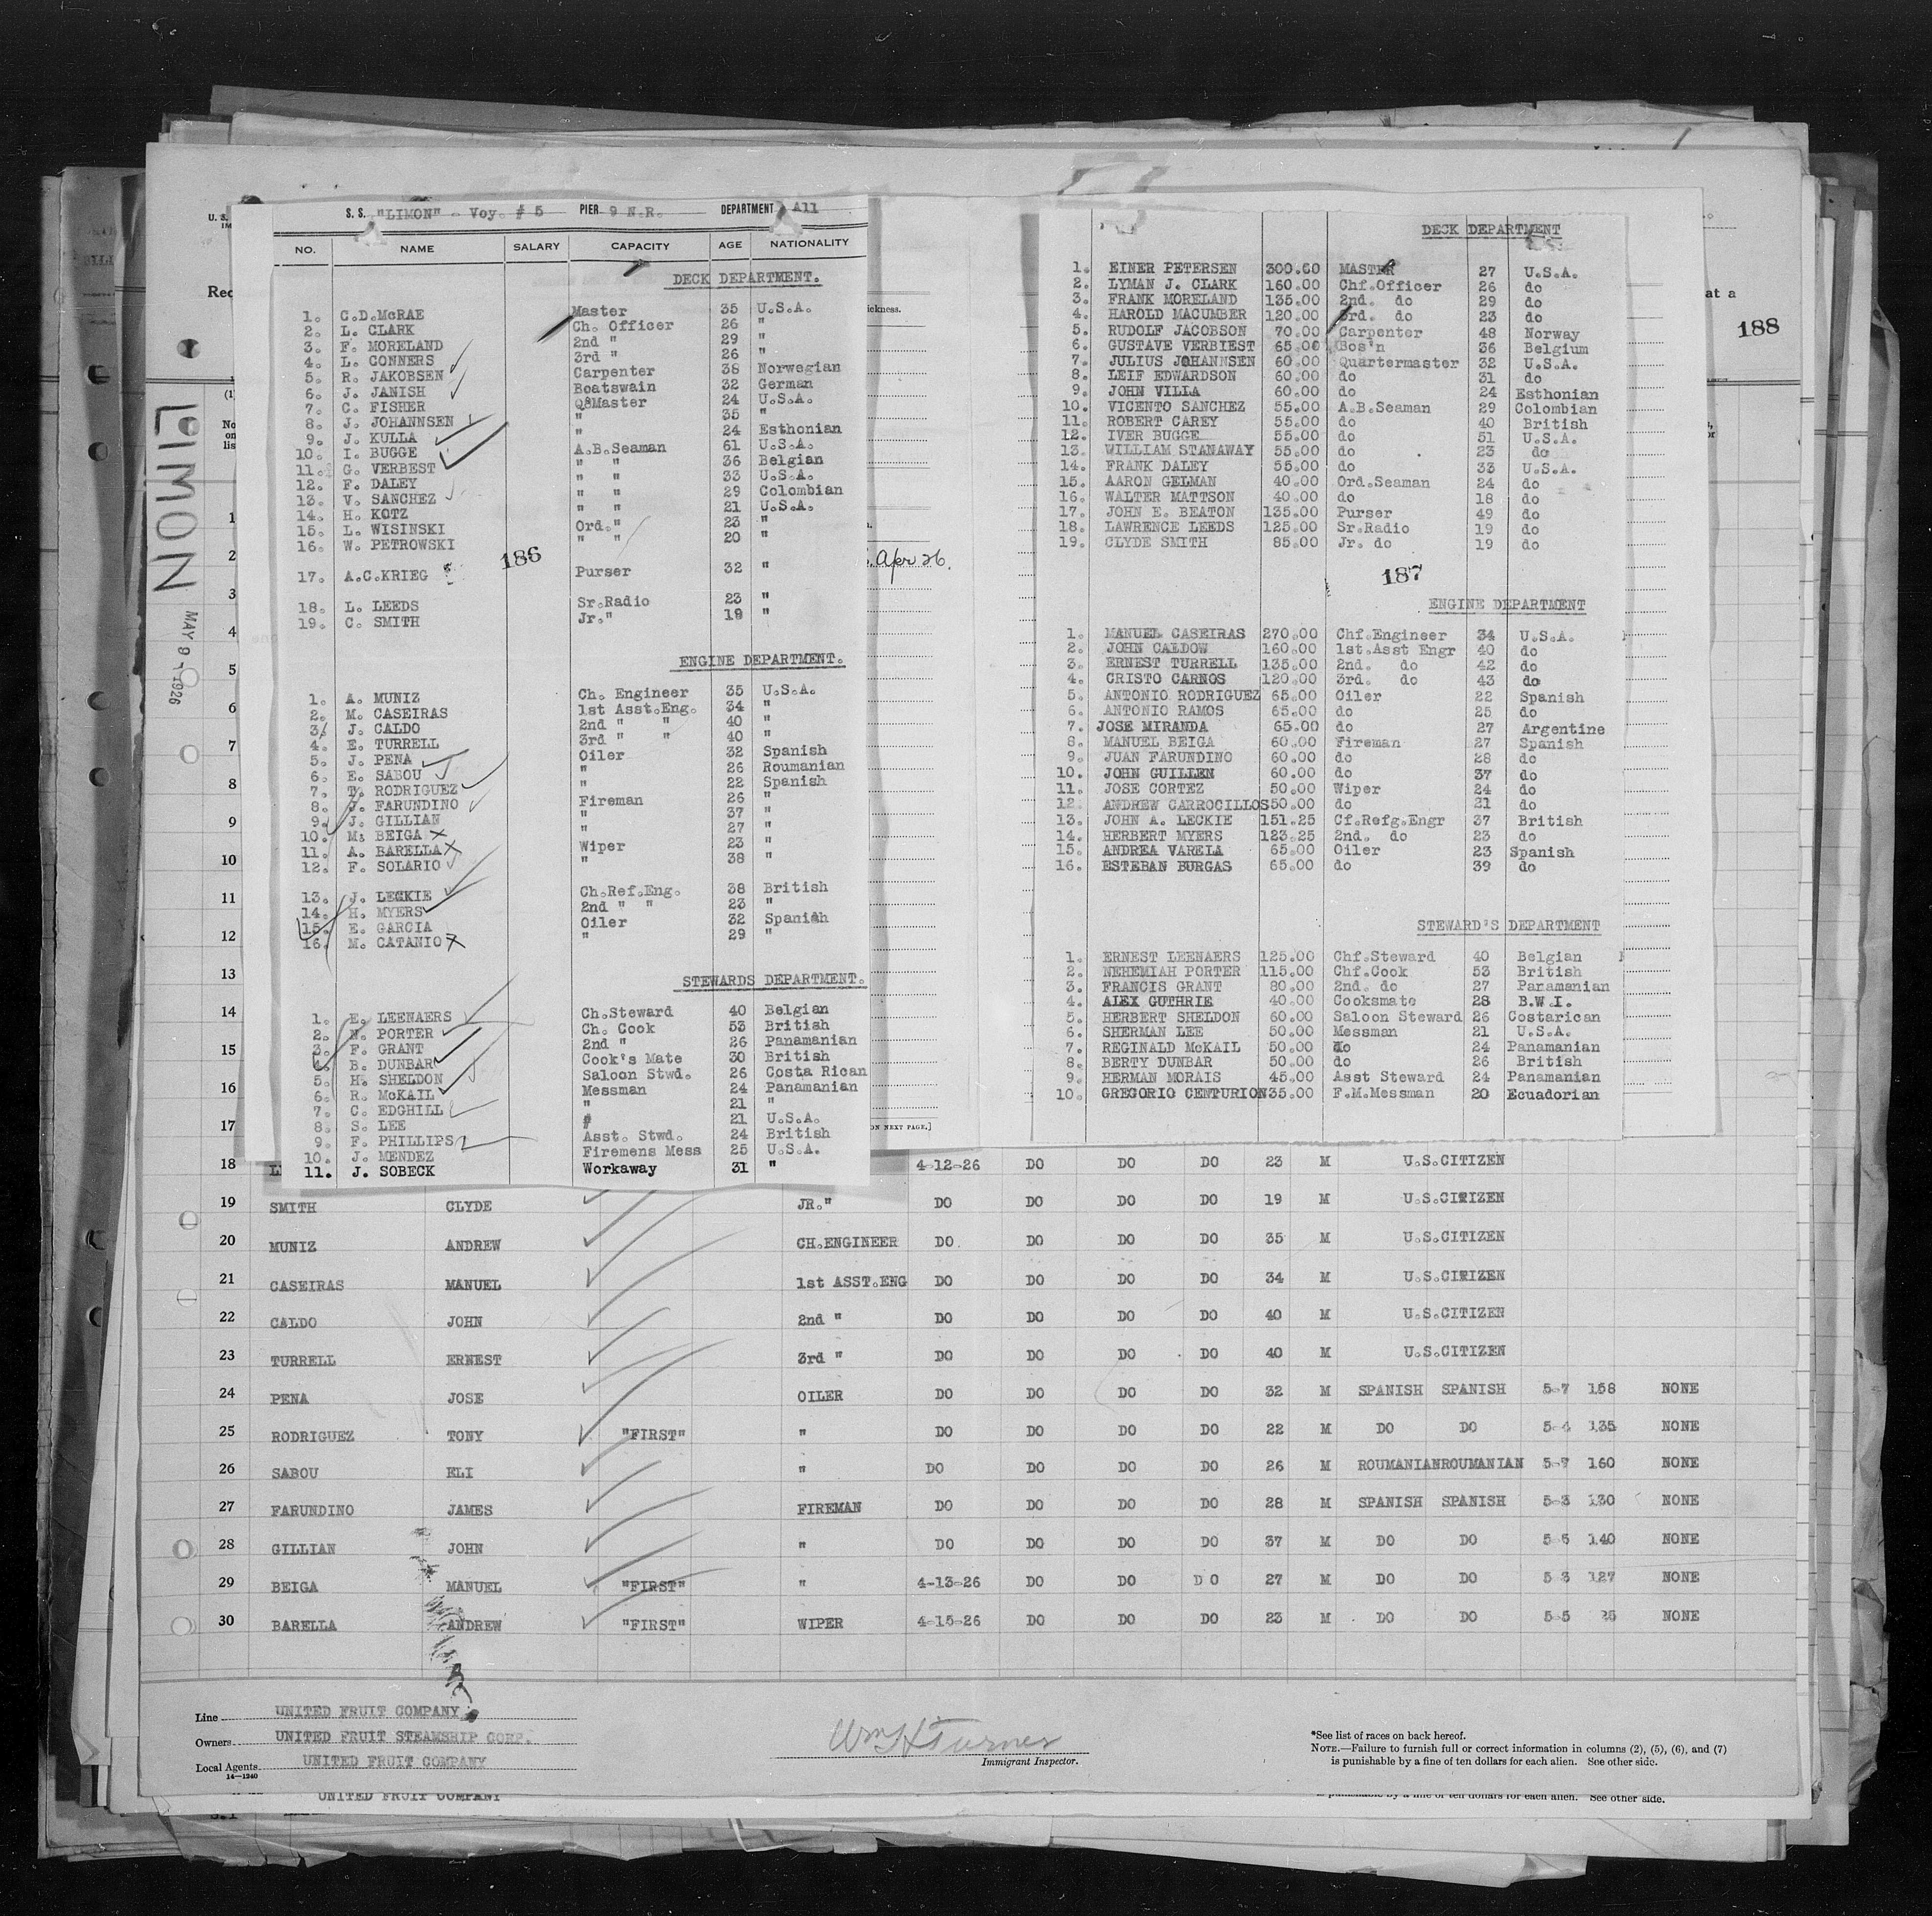 S. S. "LIMON" - Voy. # 5 PIER 9 N.R. DEPARTMENT All
NO. NAME SALARY CAPACITY AGE NATIONALITY
DECK DEPARTMENT.
1. C.D.McRAE Master 35 U.S.A.
2. L. CLARK Ch. Officer 26 "
3. F. MORELAND 2nd " 29 "
4. L. CONNERS 3rd " 26 "
5. R. JAKOBSEN Carpenter 38 Norwegian
6. J. JANISH Boatswain 32 German
7. C. FISHER Q8Master 24 U.S.A.
8. J. JOHANNSEN " 35 "
9. J. KULLA " 24 Esthonian
10. I. BUGGE A.B.Seaman 61 U.S.A.
11. G. VERBEST " " 36 Belgian
12. F. DALEY " " 33 U.S.A.
13. V. SANCHEZ " " 29 Colombian
14. H. KOTZ " " 21 U.S.A.
15. L. WISINSKI Ord." 23 "
16. W. PETROWSKI " " 20 "
186
17. A.C.KRIEG Purser 32 "
18. L. LEEDS Sr.Radio 23 "
19. C. SMITH Jr." 19 "
ENGINE DEPARTMENT.
1. A. MUNIZ Ch. Engineer 35 U.S.A.
2. M. CASEIRAS 1st Asst.Eng. 34 "
3. J. CALDO 2nd " " 40 "
4. E. TURRELL 3rd " " 40 "
5. J. PENA Oiler 32 Spanish
6. E. SABOU " 26 Roumanian
7. T. RODRIGUEZ " 22 Spanish
8. J. FARUNDINO Fireman 26 "
9. J. GILLIAN " 37 "
10. M. BEIGA " 27 "
11. A. BARELLA Wiper 23 "
12. F. SOLARIO " 38 "
13. J. LECKIE Ch.Ref.Eng. 38 British
14. H. MYERS 2nd " " 23 "
15. E. GARCIA Oiler 32 Spanish
16. M. CATANIO " 29 "
STEWARDS DEPARTMENT.
1. E. LEENAERS Ch.Steward 40 Belgian
2. N. PORTER Ch. Cook 53 British
3. F. GRANT 2nd " 26 Panamanian
4. B. DUNBAR Cook's Mate 30 British
5. H. SHELDON Saloon Stwd. 26 Costa Rican
6. R. McKAIL Messman 24 Panamanian
7. C. EDGHILL " 21 "
8. S. LEE # 21 U.S.A.
9. F. PHILLIPS Asst. Stwd. 24 British
10. J. MENDEZ Firemens Mess 25 U.S.A.
11. J. SOBECK Workaway 31 "
DECK DEPARTMENT
1. EINER PETERSEN 300.00 MASTER 27 U.S.A.
2. LYMAN J. CLARK 160.00 Chf.Officer 26 do
3. FRANK MORELAND 135.00 2nd. do 29 do
4. HAROLD MACUMBER 120.00 3rd. do 23 do
5. RUDOLF JACOBSON 70.00 Carpenter 48 Norway
6. GUSTAVE VERBIEST 65.00 Bos'n 36 Belgium
7. JULIUS JOHANNSEN 60.00 Quartermaster 32 U.S.A.
8. LEIF EDWARDSON 60.00 do 31 do
9. JOHN VILLA 60.00 do 24 Esthonian
10. VICENTO SANCHEZ 55.00 A.B.Seaman 29 Colombian
11. ROBERT CAREY 55.00 do 40 British
12. IVER BUGGE 55.00 do 51 U.S.A.
13. WILLIAM STANAWAY 55.00 do 23 do
14. FRANK DALEY 55.00 do 33 U.S.A.
15. AARON GELMAN 40.00 Ord.Seaman 24 do
16. WALTER MATTSON 40.00 do 18 do
17. JOHN E. BEATON 135.00 Purser 49 do
18. LAWRENCE LEEDS 125.00 Sr.Radio 19 do
19. CLYDE SMITH 85.00 Jr. do 19 do
187
ENGINE DEPARTMENT
1. MANUEL CASEIRAS 270.00 Chf.Engineer 34 U.S.A.
2. JOHN CALDOW 160.00 1st.Asst Engr 40 do
3. ERNEST TURRELL 135.00 2nd. do 42 do
4. CRISTO CARNOS 120.00 3rd. do 43 do
5. ANTONIO RODRIGUEZ 65.00 Oiler 22 Spanish
6. ANTONIO RAMOS 65.00 do 25 do
7. JOSE MIRANDA 65.00 do 27 Argentine
8. MANUEL BEIGA 60.00 Fireman 27 Spanish
9. JUAN FARUNDINO 60.00 do 28 do
10. JOHN GUILLEN 60.00 do 37 do
11. JOSE CORTEZ 50.00 Wiper 24 do
12. ANDREW CARROCILLOS 50.00 do 21 do
13. JOHN A. LECKIE 151.25 Cf.Refg.Engr 37 British
14. HERBERT MYERS 123.25 2nd. do 23 do
15. ANDREA VARELA 65.00 Oiler 23 Spanish
16. ESTEBAN BURGAS 65.00 do 39 do
STEWARD'S DEPARTMENT
1. ERNEST LEENAERS 125.00 Chf.Steward 40 Belgian
2. NEHEMIAH PORTER 115.00 Chf.Cook 53 British
3. FRANCIS GRANT 80.00 2nd. do 27 Panamanian
4. ALEX GUTHRIE 40.00 Cooksmate 28 B.W.I.
5. HERBERT SHELDON 60.00 Saloon Steward 26 Costarican
6. SHERMAN LEE 50.00 Messman 21 U.S.A.
7. REGINALD McKAIL 50.00 do 24 Panamanian
8. BERTY DUNBAR 50.00 do 26 British
9. HERMAN MORAIS 45.00 Asst Steward 24 Panamanian
10. GREGORIO CENTURION 35.00 F.M.Messman 20 Ecuadorian
188
at a
U. S.
Rec
LIMON
MAY 9 1926
Apr 26.
ON NEXT PAGE.]
1
2
3
4
5
6
7
8
9
10
11
12
13
14
15
16
17
18 4-12-26 DO DO DO 23 M U.S.CITIZEN
19 SMITH CLYDE JR." DO DO DO DO 19 M U.S.CITIZEN
20 MUNIZ ANDREW CH.ENGINEER DO DO DO DO 35 M U.S.CITIZEN
21 CASEIRAS MANUEL 1st ASST.ENG DO DO DO DO 34 M U.S.CITIZEN
22 CALDO JOHN 2nd " DO DO DO DO 40 M U.S.CITIZEN
23 TURRELL ERNEST 3rd " DO DO DO DO 40 M U.S.CITIZEN
24 PENA JOSE OILER DO DO DO DO 32 M SPANISH SPANISH 5-7 158 NONE
25 RODRIGUEZ TONY "FIRST" " DO DO DO DO 22 M DO DO 5-4 135 NONE
26 SABOU ELI " DO DO DO DO 26 M ROUMANIAN ROUMANIAN 5-7 160 NONE
27 FARUNDINO JAMES FIREMAN DO DO DO DO 28 M SPANISH SPANISH 5-3 130 NONE
28 GILLIAN JOHN " DO DO DO DO 37 M DO DO 5 5 140 NONE
29 BEIGA MANUEL "FIRST" " 4-13-26 DO DO DO 27 M DO DO 5 3 127 NONE
30 BARELLA ANDREW "FIRST" WIPER 4-15-26 DO DO DO 23 M DO DO 5-5 NONE
Line UNITED FRUIT COMPANY
Owners UNITED FRUIT STEAMSHIP CORP.
Local Agents UNITED FRUIT COMPANY
14-1240
Wm H Turner
Immigrant Inspector.
*See list of races on back hereof.
NOTE.—Failure to furnish full or correct information in columns (2), (5), (6), and (7)
is punishable by a fine of ten dollars for each alien. See other side.
UNITED FRUIT COMPANY
is punishable by a fine of ten dollars for each alien. See other side.